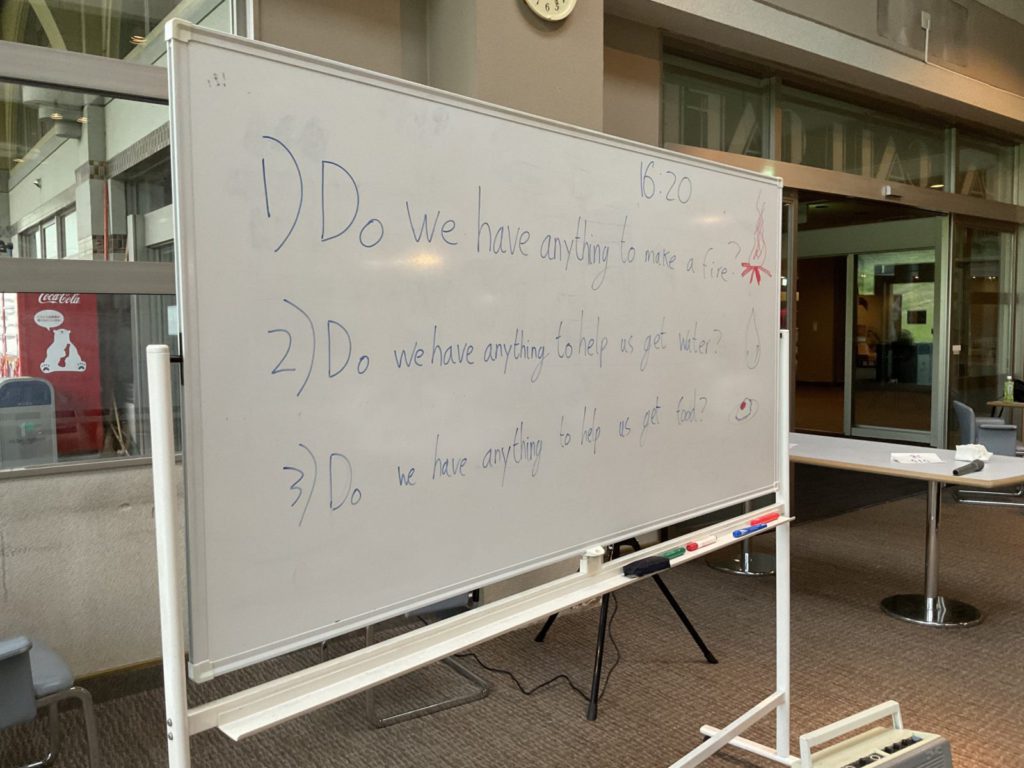 16:20
1) Do we have anything to make a fire?
2) Do we have anything to help us get water?
3) Do we have anything to help us get food?
Coca-Cola